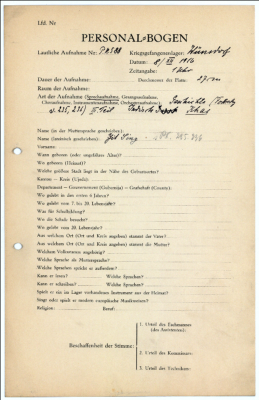 Lfd. Nr
PERSONAL-BOGEN
Lautliche Aufnahme Nr: PK 588 Kriegsgefangenenlager: Wünsdorf
Datum: 8/XII 1916
Zeitangabe: 1 Uhr
Dauer der Aufnahme: Durchmesser der Platte: 27 cm
Raum der Aufnahme:
Art der Aufnahme (Sprechaufnahme, Gesangsaufnahme,
Choraufnahme, Instrumentenaufnahme, Orchesteraufnahme):
Name (in der Muttersprache geschrieben):
Name (lateinisch geschrieben):
Vorname:
Wann geboren (oder ungefähres Alter)?
Wo geboren (Heimat)?
Welche größere Stadt liegt in der Nähe des Geburtsortes?
Kanton — Kreis (Ujedz):
Departement — Gouvernement (Gubernija) — Grafschaft (County):
Wo gelebt in den ersten 6 Jahren?
Wo gelebt vom 7. bis 20. Lebensjahr?
Was für Schulbildung?
Wo die Schule besucht?
Wo gelebt vom 20. Lebensjahr?
Aus welchem Ort (Ort und Kreis angeben) stammt der Vater?
Aus welchem Ort (Ort und Kreis angeben) stammt die Mutter?
Welchem Volksstamm angehörig?
Welche Sprache als Muttersprache?
Welche Sprachen spricht er außerdem?
Kann er lesen? Welche Sprachen?
Kann er schreiben? Welche Sprachen?
Spielt er ein im Lager vorhandenes Instrument aus der Heimat?
Singt oder spielt er modern europäische Musikweisen?
Religion: Beruf:
1. Urteil des Fachmannes
(des Assistenten):
Beschaffenheit der Stimme:
2. Urteil des Kommissars:
3. Urteil des Technikers: